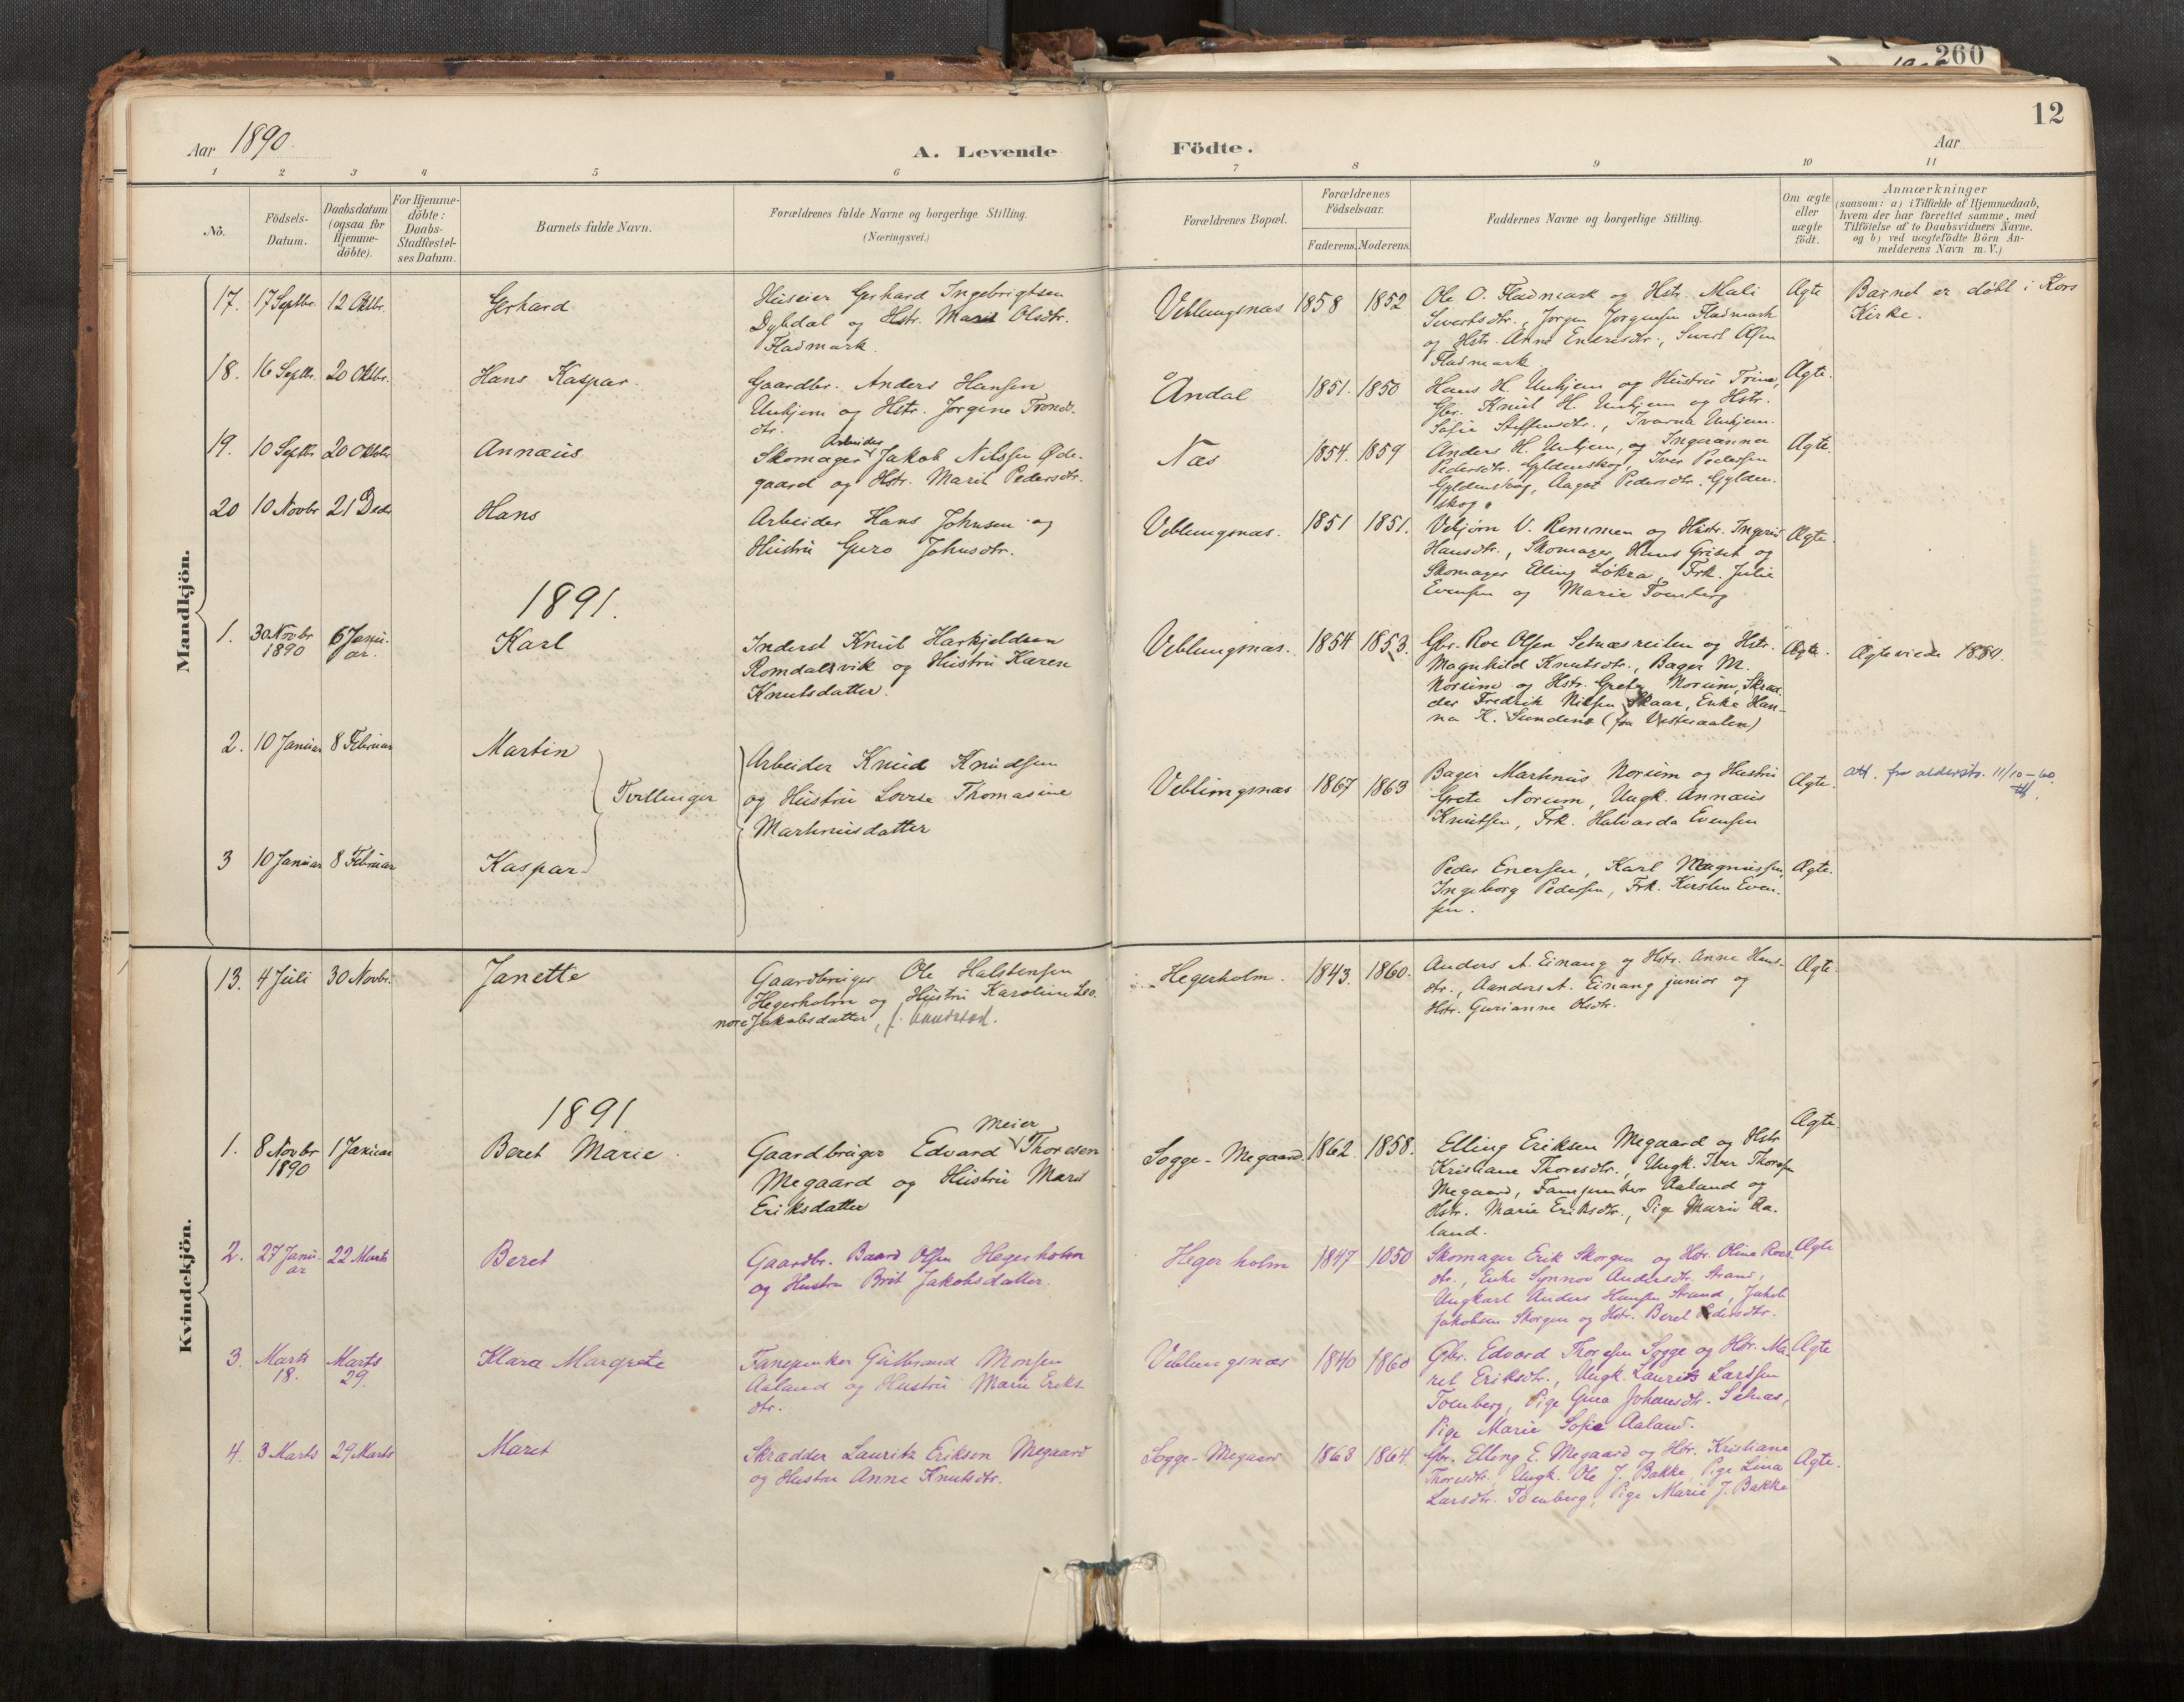 260
12
Aar 1890.
A. Levende Födte.
Aar
1 2 3 4 5 6 7 8 9 10 11
No.
Födsels-
Datum.
Daabsdatum
(ogsaa for
Hjemme-
döbte).
For Hjemme-
döbte:
Daabs-
Stadfæstel-
ses Datum.
Barnets fulde Navn.
Forældrenes fulde Navne og borgerlige Stilling.
(Næringsvei.)
Forældrenes Bopæl.
Forældrenes
Födselsaar.
Faderens. Moderens.
Faddernes Navne og borgerlige Stilling.
Om ægte
eller
uægte
födt.
Anmærkninger
(saasom: a) i Tilfælde af Hjemmedaab,
hvem der har forrettet samme, med
Tilföielse af to Daabsvidners Navne,
og b) ved uægtefödte Börn An-
melderens Navn m. V.)
Mandkjön.
17. 17 Septbr. 12 Oktbr.
Gerhard
Huseier Gerhard Ingebrigtsen
Dybdal og Hstr. Marit Olsdtr.
Fladmark.
Veblungsnæs 1858 1852
Ole O. Fladmark og Hstr. Mali
Sivertsdtr., Jørgen Jørgensen Fladmark
og Hstr. Anne Endresdtr., Sivert Olsen
Fladmark
Ægte
Barnet er døbt i Kors
Kirke.
18. 16 Septbr. 20 Oktbr.
Hans Kaspar.
Gaardbr. Anders Hansen
Unhjem og Hstr. Jørgine Tronds-
dtr.
Åndal 1851. 1850
Hans H. Unhjem og Hustru Trine,
Gbr. Knut H. Unhjem og Hstr.
Sofie Steffensdtr., Ivarna Unhjem.
Ægte.
19. 10 Septbr. 20 Oktbr.
Annæus
Arbeider
Skomager Jakob Nilssen Øde-
gaard og Hstr. Marit Pedersdtr.
Næs 1854. 1859
Anders H. Unhjem, og Ingeranna
Pedersdtr. Gyldenskog, Iver Pedersen
Gyldenskog, Aagot Pedersdtr. Gylden-
skog.
Ægte.
20 10 Novbr 21 Decbr
Hans
Arbeider Hans Johnsen og
Hustru Guro Johnsdtr.
Veblungsnæs. 1851 1851.
Vebjørn V. Remmen og Hustr. Ingrid
Hansdtr., Skomager Hans Griset og
Skomager Elling Løkra, Frk. Julie
Evensen og Marie Tomberg
Ægte.
1891.
1. 30 Novbr 1890 6 Janu-
ar.
Karl
Inderst Knut Harkjeldsen
Romdalsvik og Hustru Karen
Knutsdatter.
Veblungsnæs. 1854 1853.
Gbr. Roe Olsen Setnæsreiten og Hstr.
Magnhild Knutsdtr., Bager M.
Norum og Hstr. Grete Norum, Skræd-
der Fredrik Nilsen Skaar, Enke Han-
na K. Sundene (fra Vesteraalen)
Ægte.
Ægteviede 1880.
2. 10 Januar 8 Februar
Martin
Tvillinger
Arbeider Knud Knudsen
og Hustru Lovise Thomasine
Martinusdatter
Veblungsnæs 1867 1863
Bager Martinus Norum og Hustru
Grete Norum, Ungk. Annæus
Knutsen, Frk. Halvarda Evensen
Ægte.
att. for alderstr. 11/10-60.
3 10 Januar 8 Februar
Kaspar
Peder Enersen, Karl Magnussen,
Ingeborg Pedersen, Frk. Kirsten Even-
sen.
Ægte.
Kvindekjön.
13. 4 Juli 30 Novbr.
Janette
Gaardbruger Ole Halstensen
Hegerholm og Hustru Karoline Leo-
nore Jakobsdatter,
Hegerholm. 1843. 1860.
Anders A. Einang og Hstr. Anne Hans-
dtr., Aanders A. Einang junior og
Hstr. Gurianne Olsdtr.
Ægte.
1891.
1. 8 Novbr 1890 1 Januar
Beret Marie.
Meier
Gaardbruger Edvard Thoresen
Megaard og Hustru Marit
Eriksdatter
Sogge-Megaard. 1862. 1858.
Elling Eriksen Megaard og Hstr
Kristiane Thoresdtr., Ungk. Iver Thoresen
Megaard, Fanejunker Aaland og
Hstr. Marie Eriksdtr., Pige Marie Aa-
land.
Ægte.
2. 27 Janu-
ar 22 Marts
Beret
Gaardbr. Baard Olsen Hegerholm
og Hustru Brit Jakobsdatter.
Hegerholm 1847 1850
Skomager Erik Skorgen og Hstr. Oline Roes-
dtr., Enke Synnøv Andersdtr. Strand,
Ungkarl Anders Hansen Strand, Jakob
Jakobsen Skorgen og Hstr. Beret Pedersdtr.
Ægte
3. Marts
18. Marts
29.
Klara Margrete
Fanejunker Gulbrand Monsen
Aaland og Hustru Marie Eriks-
dtr.
Veblungsnæs 1840 1860
Gbr. Edvard Thoresen Sogge og Hstr. Ma-
rit Eriksdtr., Ungk. Laurits Larssen
Tomberg, Pige Gina Johansdtr. Setnæs,
Pige Marie Sofie Aaland.
Ægte
4. 3 Marts 29 Marts
Marit
Skrædder Lauritz Eriksen Megaard
og Hustru Anne Knutsdtr.
Sogge-Megaard 1868 1864.
Gbr. Elling E. Megaard og Hstr. Kristiane
Thoresdtr., Ungk. Ole J. Bakke, Pige Lina
Larsdtr. Tomberg, Pige Marie J. Bakke
Ægte.